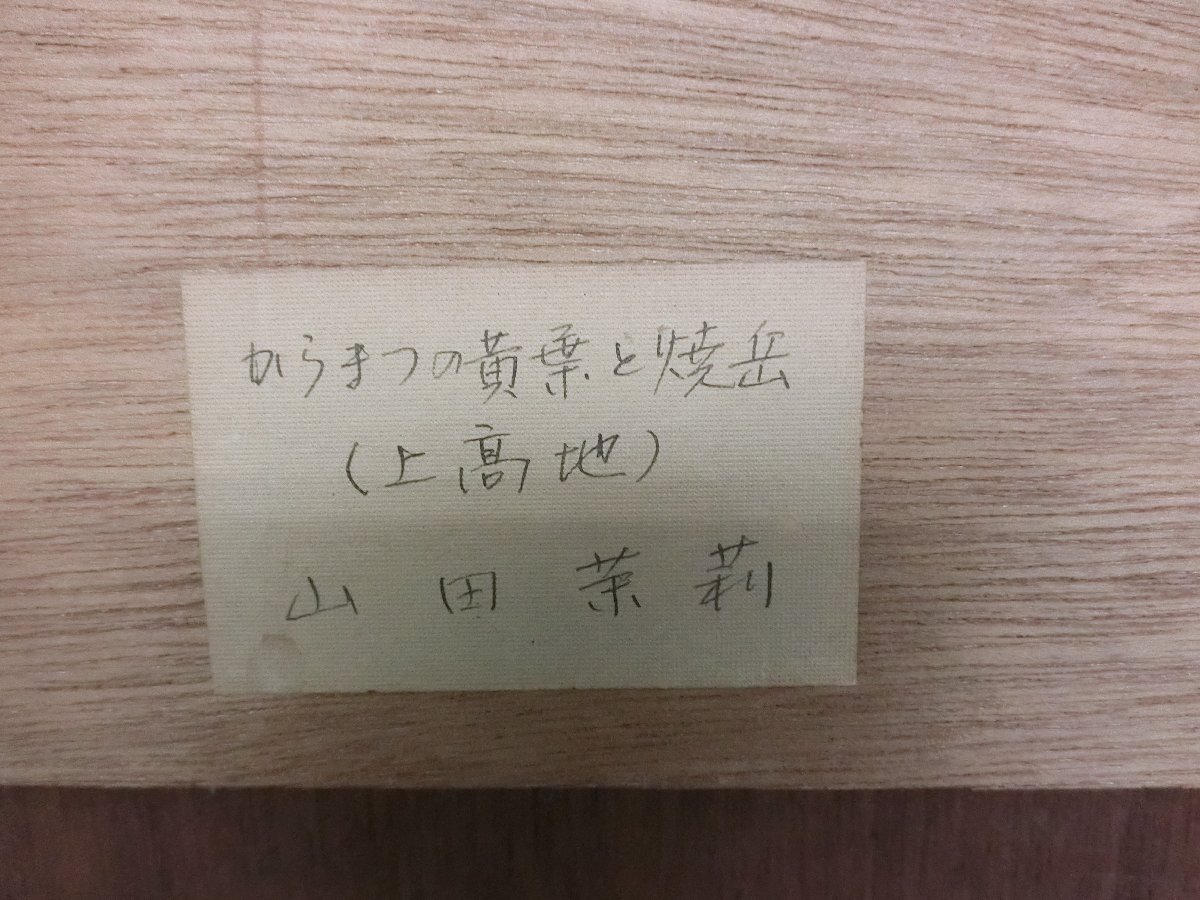 からまつの黄葉と焼岳
(上高地)
山田茉莉